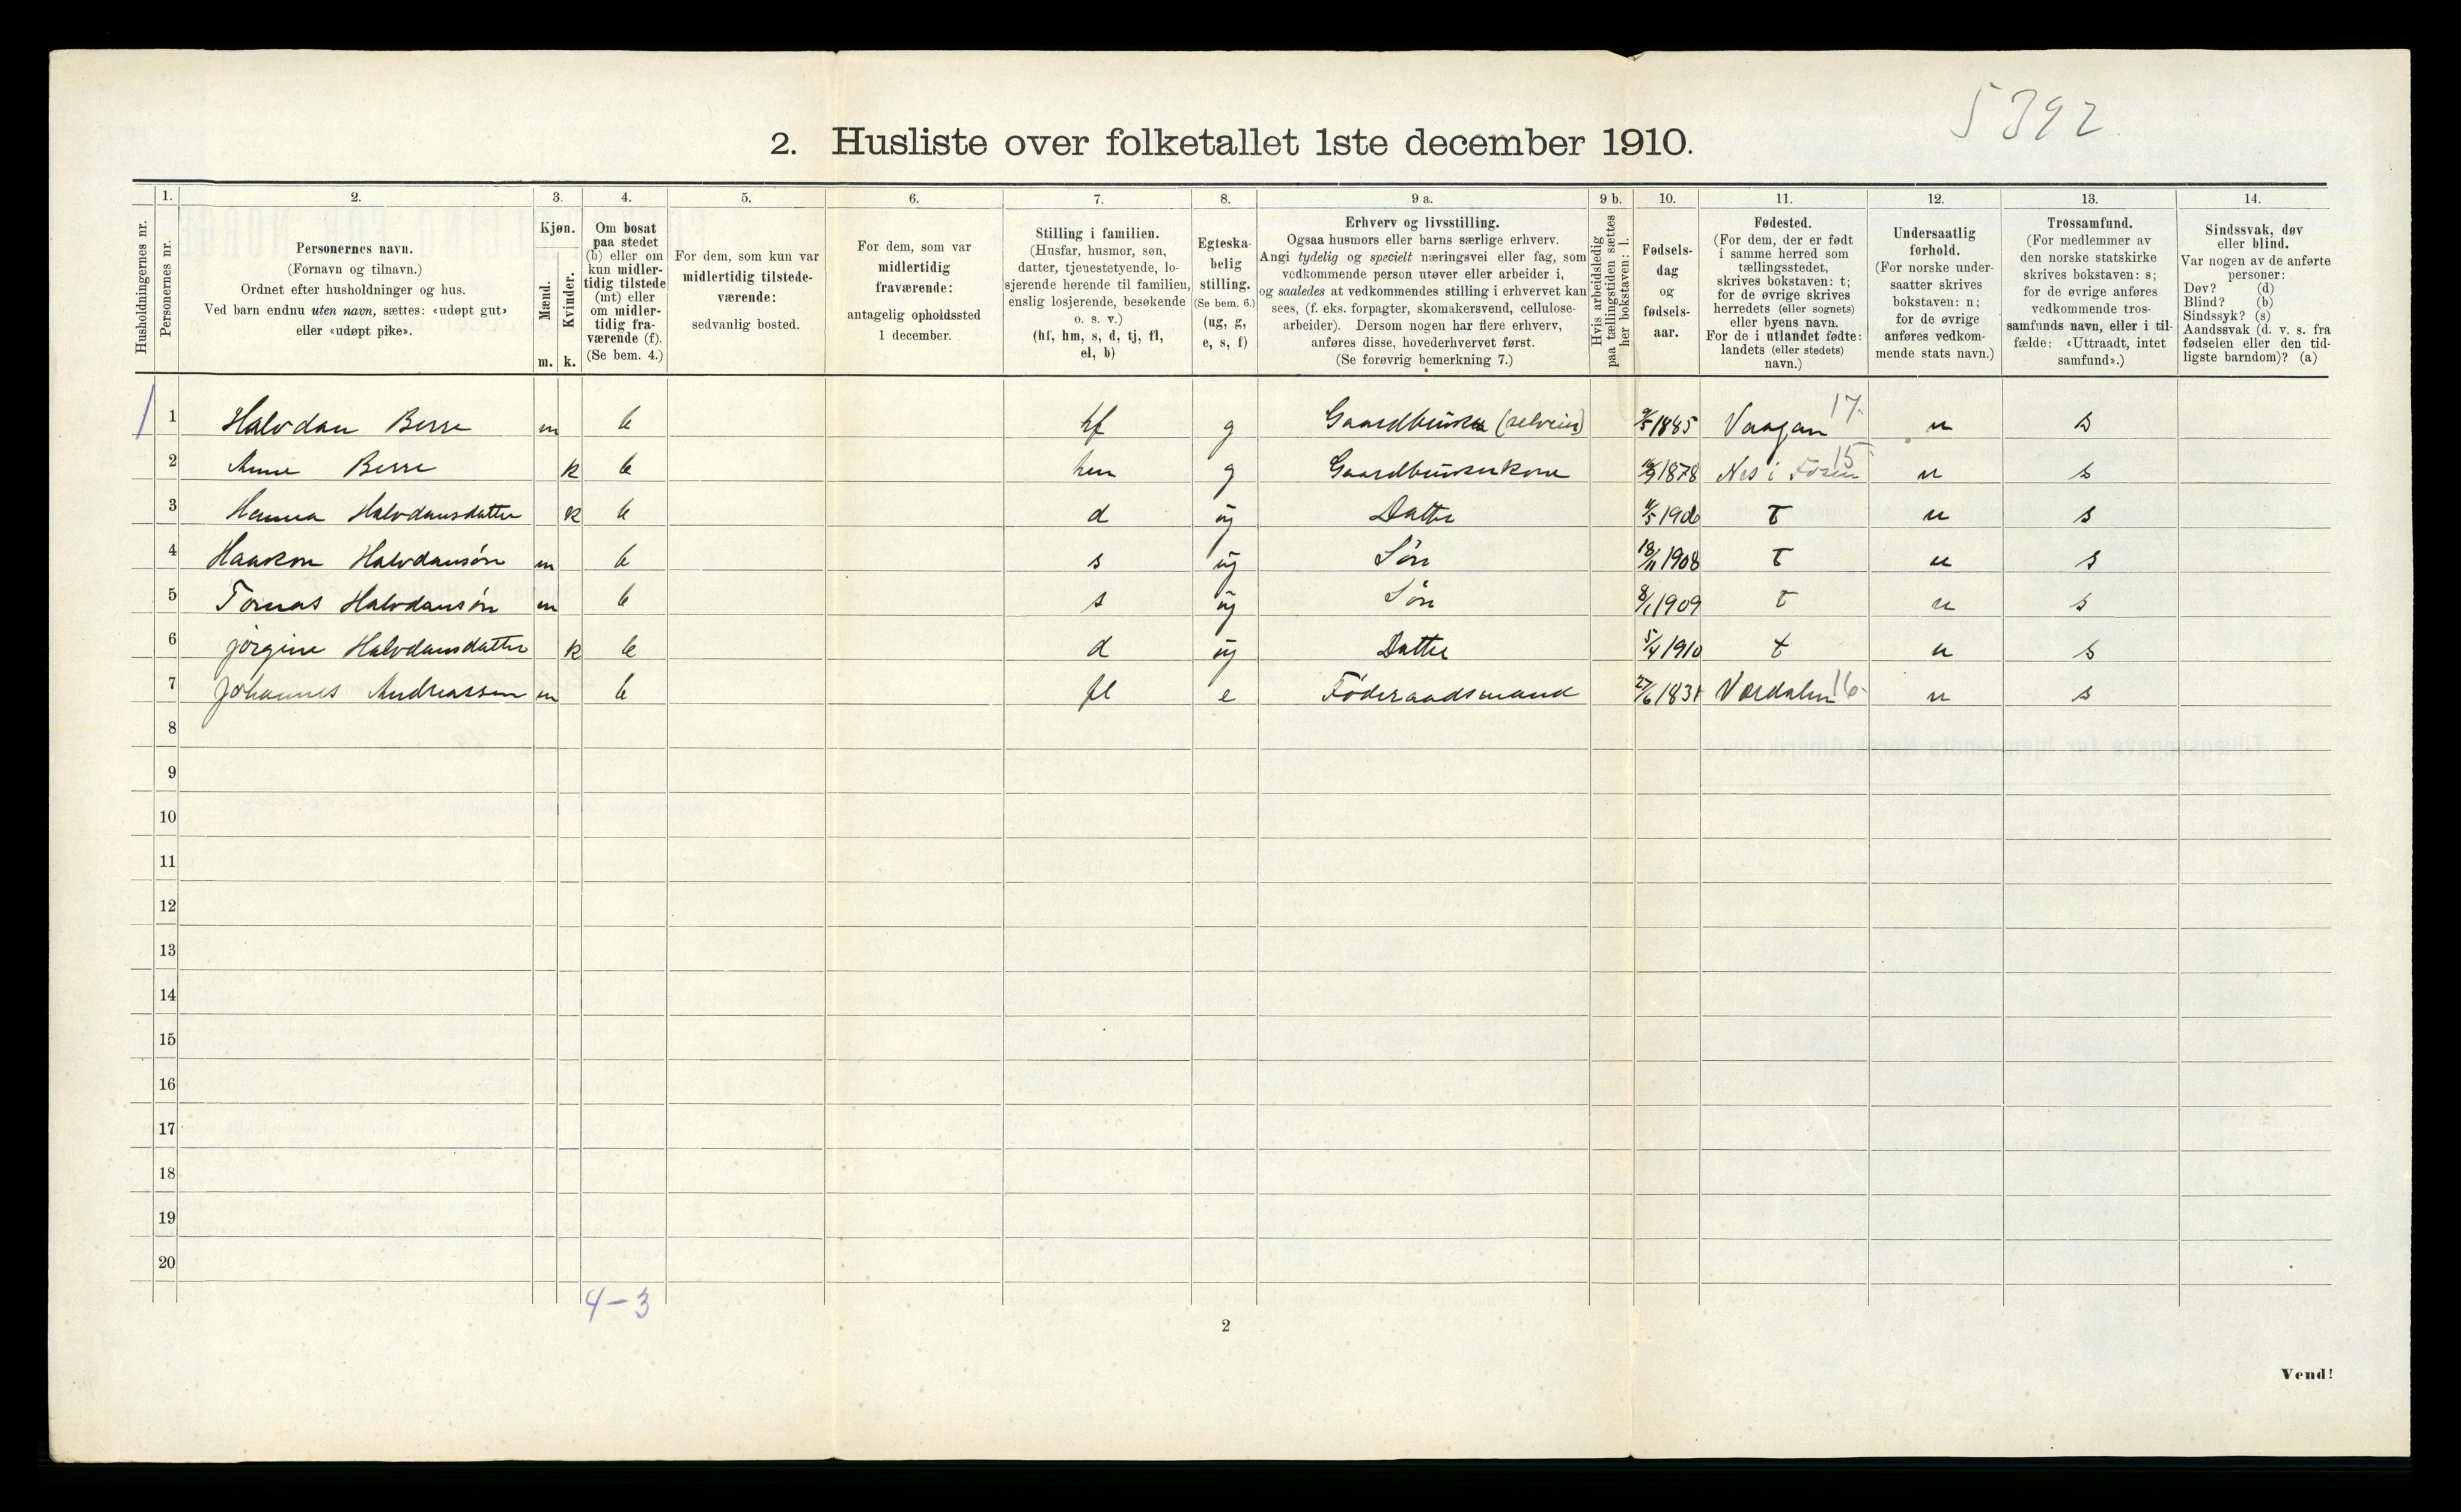 5392
2. Husliste over folketallet 1ste december 1910.
Husholdningernes nr.
1.
Personernes nr.
2.
Personernes navn.
(Fornavn og tilnavn.)
Ordnet efter husholdninger og hus.
Ved barn endnu uten navn, sættes: «udøpt gut»
eller «udøpt pike».
3.
Kjøn.
Mænd.
Kvinder.
m. k.
4.
Om bosat
paa stedet
(b) eller om
kun midler-
tidig tilstede
(mt) eller
om midler-
tidig fra-
værende (f).
(Se bem. 4.)
5.
For dem, som kun var
midlertidig tilstede-
værende:
sedvanlig bosted.
6.
For dem, som var
midlertidig
fraværende:
antagelig opholdssted
1 december.
7.
Stilling i familien.
(Husfar, husmor, søn,
datter, tjenestetyende, lo-
sjerende hørende til familien,
enslig losjerende, besøkende
o. s. v.)
(hf, hm, s, d, tj, fl,
el, b)
8.
Egteska-
belig
stilling.
(Se bem. 6.)
(ug, g,
e, s, f)
9 a.
Erhverv og livsstilling.
Ogsaa husmors eller barns særlige erhverv.
Angi tydelig og specielt næringsvei eller fag, som
vedkommende person utøver eller arbeider i,
og saaledes at vedkommendes stilling i erhvervet kan
sees, (f. eks. forpagter, skomakersvend, cellulose-
arbeider). Dersom nogen har flere erhverv,
anføres disse, hovederhvervet først.
(Se forøvrig bemerkning 7.)
9 b.
Hvis arbeidsledig
paa tællingstiden sættes
her bokstaven: l.
10.
Fødsels-
dag
og
fødsels-
aar.
11.
Fødested.
(For dem, der er født
i samme herred som
tællingsstedet,
skrives bokstaven: t;
for de øvrige skrives
herredets (eller sognets)
eller byens navn.
For de i utlandet fødte:
landets (eller stedets)
navn.)
12.
Undersaatlig
forhold.
(For norske under-
saatter skrives
bokstaven: n;
for de øvrige
anføres vedkom-
mende stats navn.)
13.
Trossamfund.
(For medlemmer av
den norske statskirke
skrives bokstaven: s;
for de øvrige anføres
vedkommende tros-
samfunds navn, eller i til-
fælde: «Uttraadt, intet
samfund».)
14.
Sindssvak, døv
eller blind.
Var nogen av de anførte
personer:
Døv? (d)
Blind? (b)
Sindssyk? (s)
Aandssvak (d. v. s. fra
fødselen eller den tid-
ligste barndom)? (a)
1 Halvdan Berre m b hf g Gaardbruker (selveier) 1885 Vaagan 17. n s
2 Anne Berre k b hm g Gaardbrukerkone 1878 Nes i Fosen 15 n s
3 Hanna Halvdansdatter k b d ug Datter 1906 t n s
4 Haakon Halvdansøn m b s ug Søn 18/11 1908 t n s
5 Tomas Halvdansøn m b s ug Søn 8/1 1909 t n s
6 Jørgine Halvdansdatter k b d ug Datter 5/4 1910 t n s
7 Johannes Andreassen m b fl e Føderaadsmand 27/6 1831 Værdalen 16. n s
8
9
10
11
12
13
14
15
16
17
18
19
20
4-3
2
Vend!